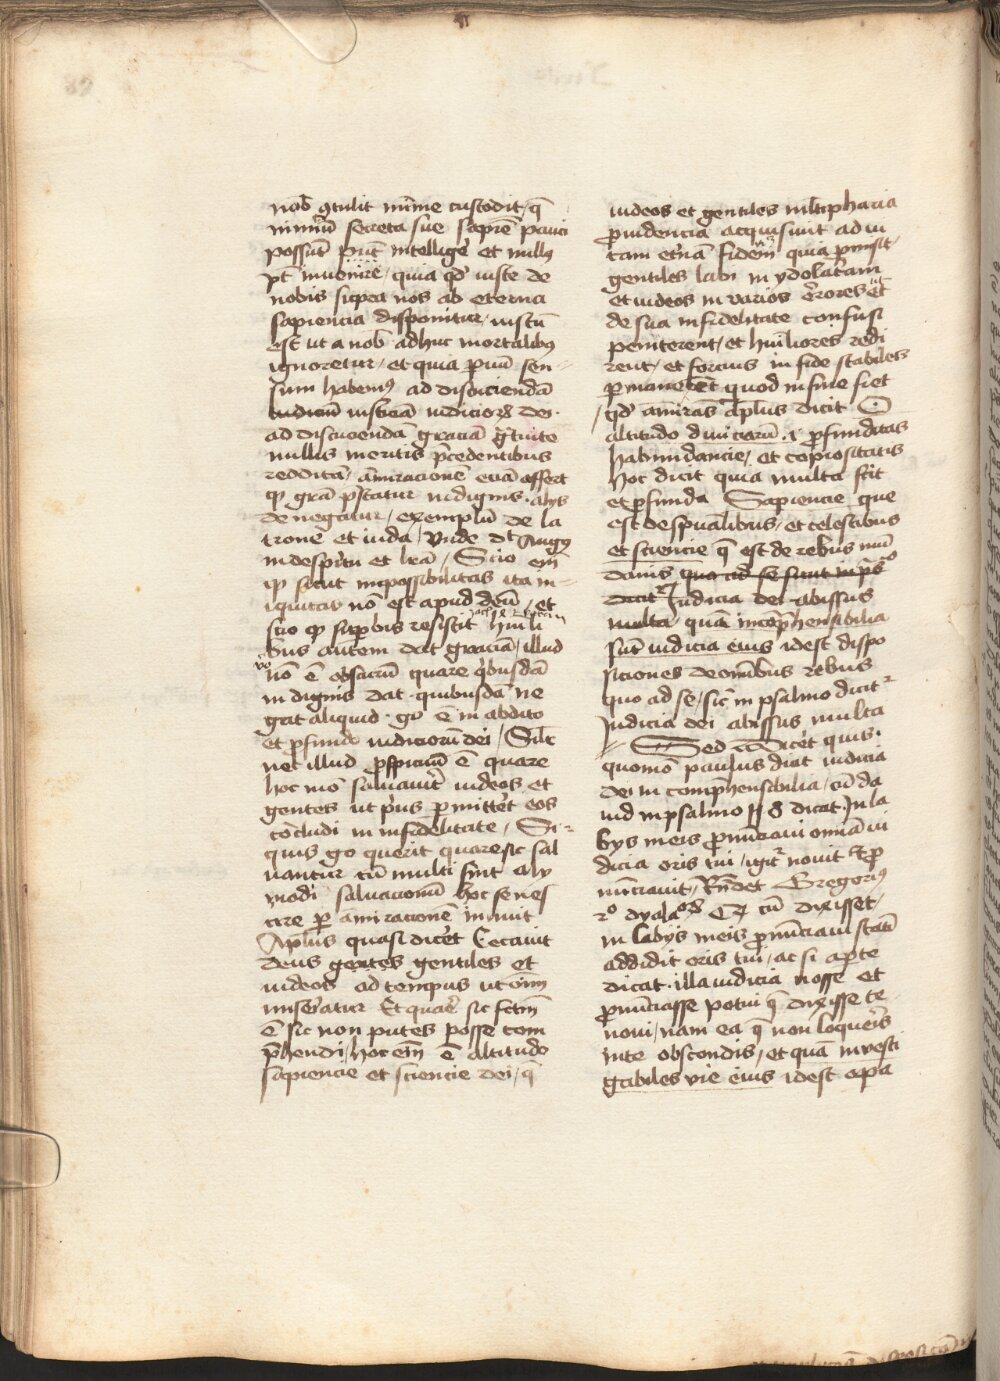 nob̄ ꝯtulit mīme custodit / q̄
nimiū secreta sue sapīe pauci
possūt pūt intelligē et nullꝰ
pt̄ inuenire / quia qd̄ iuste de
nobis supra nos ab eterna
sapiencia disponitur / iustū
est ut a nob̄ adhuc mortalibꝫ
ignoretur / et quia paruū sen
sum habemꝰ ad discuciendā
iusticiā iudicioꝝ dei ·
ad discuciendā graciā gᷓtuite
nullis meritis p̄cedentibus
redditā / āmiracionē eciā affert
ꝙ grā p̄statur indignis · alijs
denegatur / exemplū de la
trone et iuda / Vnde dt̄ Augꝰ
in de spū et lrā / Scio em̄
ꝙ sicut impossibilitas ita in
iquitas nō est apud deū / et
scio ꝙ supbis resistit hūili
bus autem dat graciā / illud
uͦ nō ē obscurū quare qͥbusdā
indignis dat · quibusdā ne
gat aliquid · gͦ ē in abdito
et pfundo iudiciorū dei / Silr
nec illud pspicuū ē quare
hoc mō saluauit iudeos et
gentes ut pͥus pmittet eos
cōcludi in infidelitate / Si
quis gͦ querit quare sic sal
uantur cū multi sint alij
modi saluacionū hoc se nes
cire p āmiracionē innuit
Aplūs quasi dicet Cecauit
deus gentes gentiles et
iudeos ad tempus ut oīm
misereatur Et quare sic fctm̄
ē sic non putes posse com
p̄hendi / hoc em̄ ē altitudo
sapiencie et sciencie dei / q̄
iudeos et gentiles mltipharia
prouidencia acquisiuit ad ui
tam etnā fidem quia pmisit
gentiles labi in ydolatriam
et iudeos in varios errores ut
de sua infidelitate confusi
peniterent / et hūiliores redi
rent / et forcius in fide stabiles
pmanerent quod in fine fiet
/ qd̄ āmirās aplūs dicit O
altitudo diuiciarū · i · pfunditas
habundancie / et copiositatis
hoc dicit quia multa scit
et pfunda Sapiencie que
est de spūalibus / et celestibus
et sciencie q̄ est de rebus mū
danis quo ad se sunt in ps̄ͦ
dicitᷣ Judicia dei abissus
multa quā incōp̄hensibilia
sūt iudicia eius idest dispo
siciones de omībus rebus
quo ad se / sic̄ in psalmo dicitᷣ
Judicia dei abissus multa
// Sed diceret quis ·
quomō paulus dicat iudicia
dei incomp̄hensibilia / cū da
uid in psalmo 118 dicat · In la
bijs meis pnūciaui omīa iu
dicia oris tui / igitᷣ nouit et p
nūciauit / Rn̄det Gregoriꝰ
2ͦ dyalaͦꝝ Cū dixisset /
in labijs meis pnūciaui statī
addidit oris tui / ac si apte
dicat · illa iudicia nosse et
pnūciasse potui q̄ dixisse te
noui / nam ea q̄ non loqueris
in te abscondis / et quā inuesti
gabiles vie eius idest opa